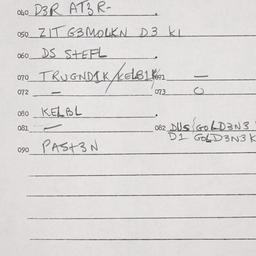 060 D3R AT3R-
050 ZIT G3MOLKN D3 KI
060 DS StEFL
070 TRUGND1K/KELB1K 071 —
072 — 073 O
080 KELBL
081 — 082 DUS GOLD3N3
D1 GOLD3N3K
090 PASt3N